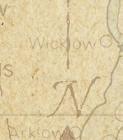 Wicklow
ds
N
Arklow